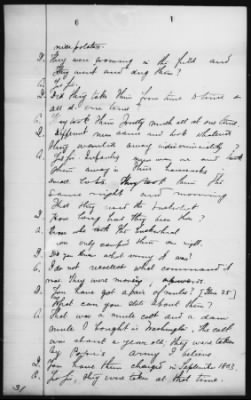 6
1
nice potatoes.
Q. They were growing in the field and
they went and dug them?
A. Yes sir.
Q. Did they take them from time to time or
all at one time?
A. They took them pretty much all at one time
Q. Different men came and took whatever
they wanted away indiscriminately?
A. Yes sir. Infantry men and took
them away in their haversacks
made lots. They took them the
same night and morning
that they went the
Q. How long had they been there?
A. Were the
only camped there one night.
Q. Do you know what army it was?
A. I do not recollect what command it
was. They were moving,
Q. You have got a pair of mules? [Item 25]
What can you state about them?
A. That was a mule colt and a dam
mule I bought in Washington. The colt
was about a year old, they were taken
by Pope's army I believe.
Q. You have them charged in September 1863.
A. Yes sir, they were taken at that time.
31